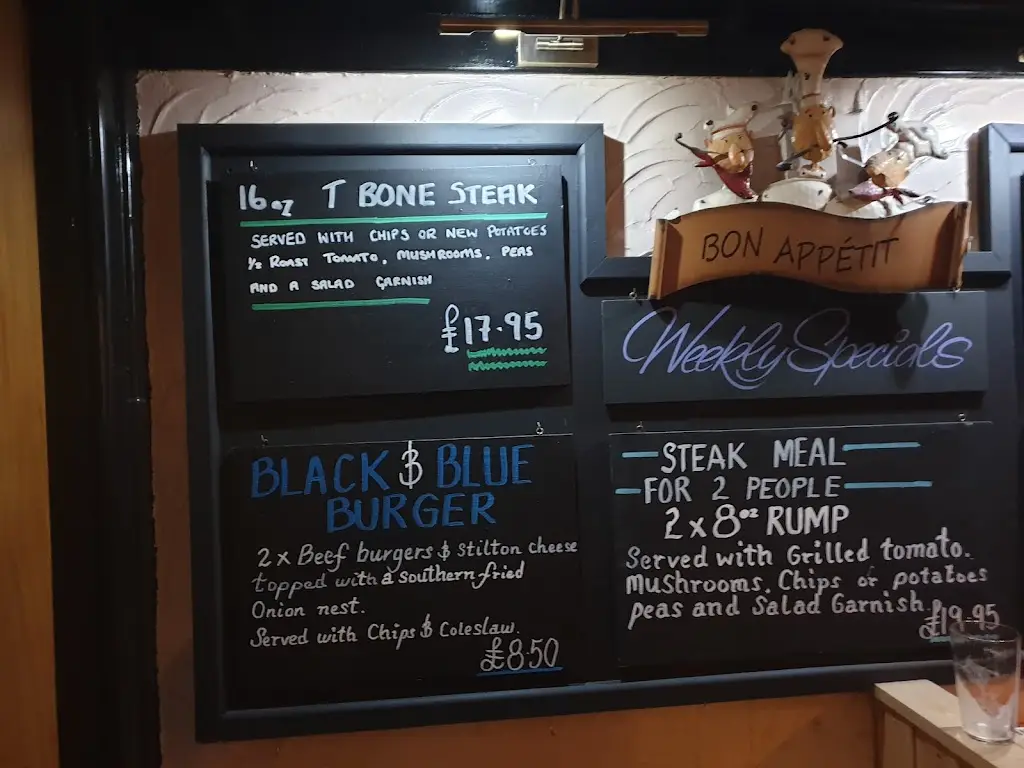 16oz T BONE STEAK
SERVED WITH CHIPS OR NEW POTATOES
½ ROAST TOMATO, MUSHROOMS, PEAS
AND A SALAD GARNISH
£17.95
BLACK & BLUE
BURGER
2 x Beef burgers & Stilton cheese
topped with a Southern fried
Onion nest.
Served with Chips & Coleslaw.
£8.50
BON APPÉTIT
Weekly Specials
STEAK MEAL
FOR 2 PEOPLE
2 x 8oz RUMP
Served with Grilled tomato.
Mushrooms. Chips or potatoes
peas and Salad Garnish.
£19.95